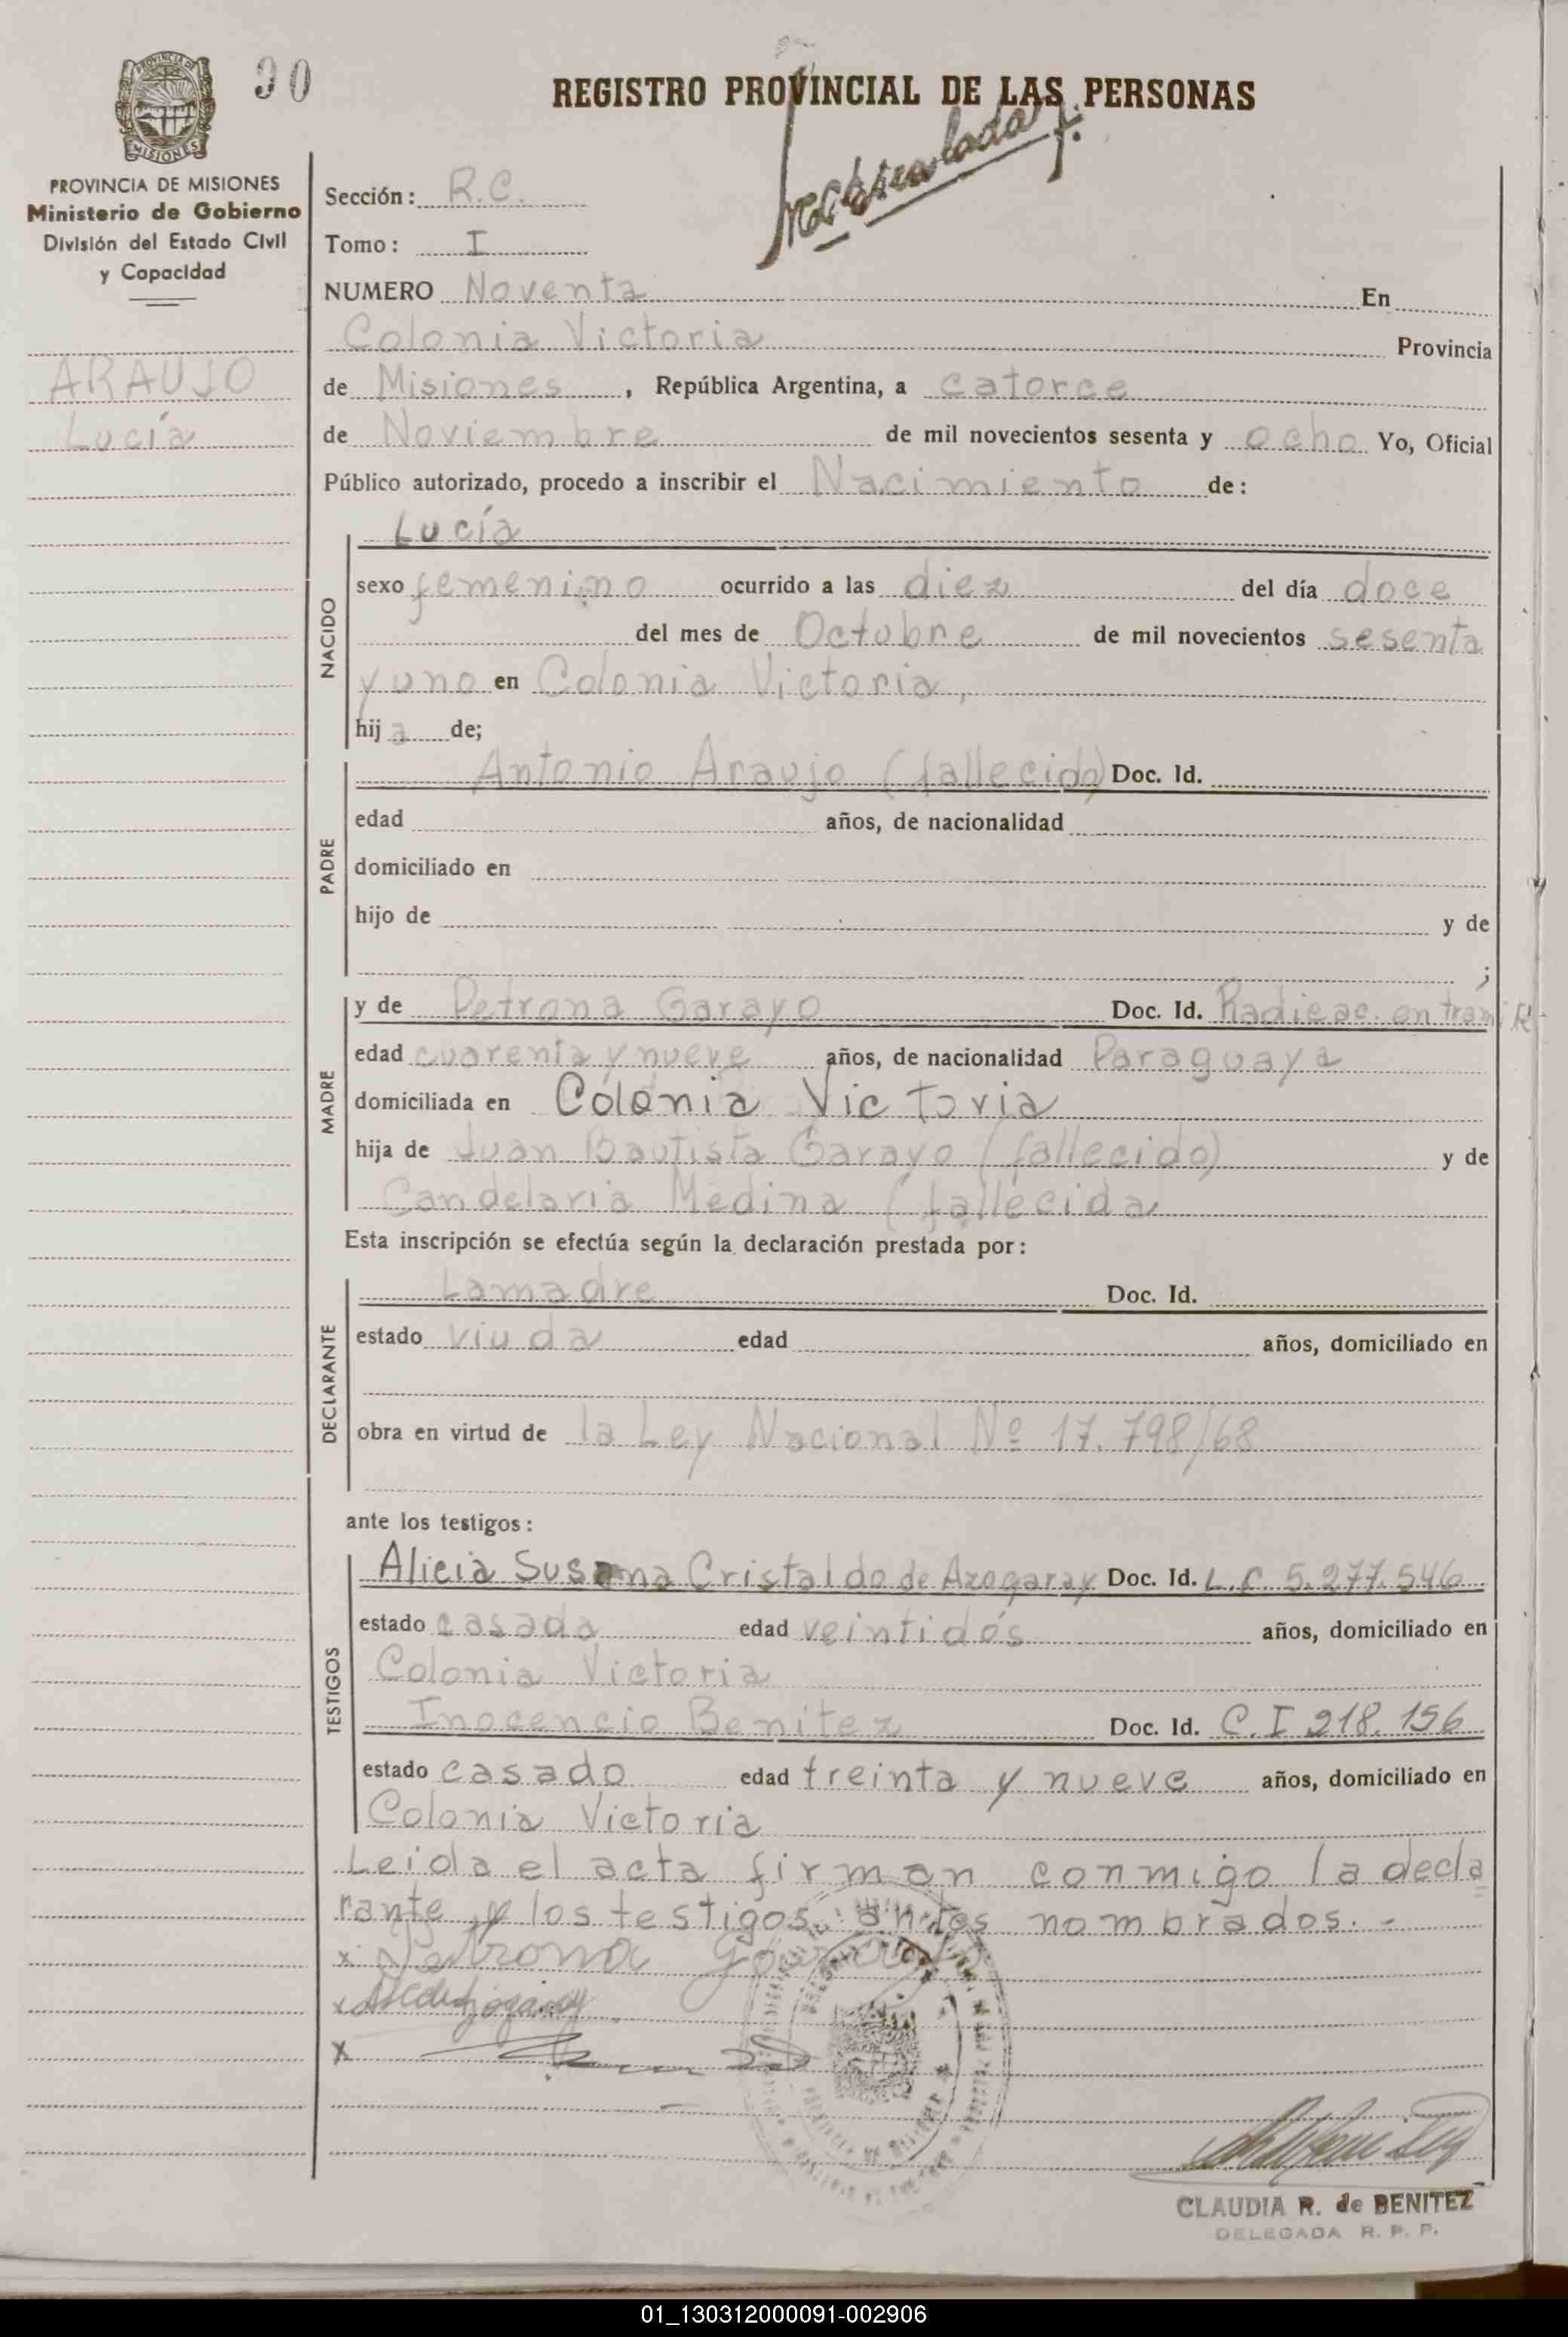 90
REGISTRO PROVINCIAL DE LAS PERSONAS
PROVINCIA DE
MISIONES
PROVINCIA DE MISIONES
Ministerio de Gobierno
División del Estado Civil
y Capacidad
ARAUJO
Lucía
Sección: R.C.
Tomo: I
NUMERO Noventa En
Colonia Victoria Provincia
de Misiones, República Argentina, a catorce
de Noviembre de mil novecientos sesenta y ocho Yo, Oficial
Público autorizado, procedo a inscribir el Nacimiento de:
NACIDO
Lucía
sexo femenino ocurrido a las diez del día doce
del mes de Octubre de mil novecientos sesenta
y uno en Colonia Victoria,
hija de;
PADRE
Antonio Araujo (fallecido) Doc. Id.
edad años, de nacionalidad
domiciliado en
hijo de y de
;
MADRE
y de Petrona Garayo Doc. Id. Radicac. en tramit
edad cuarenta y nueve años, de nacionalidad Paraguaya
domiciliada en Colonia Victoria
hija de Juan Bautista Garayo (fallecido) y de
Candelaria Medina (fallecida
Esta inscripción se efectúa según la declaración prestada por:
DECLARANTE
La madre Doc. Id.
estado viuda edad años, domiciliado en
obra en virtud de la Ley Nacional Nº 17.798/68
ante los testigos:
TESTIGOS
Alicia Susana Cristaldo de Azogaray Doc. Id. L.C. 5.277.546
estado casada edad veintidós años, domiciliado en
Colonia Victoria
Inocencio Benitez Doc. Id. C.I 218.156
estado casado edad treinta y nueve años, domiciliado en
Colonia Victoria
Leida el acta firman conmigo la decla
rante y los testigos antes nombrados.-
x Petrona Garayo
x
x
CLAUDIA R. de BENITEZ
DELEGADA R. P. P.
01_130312000091-002906